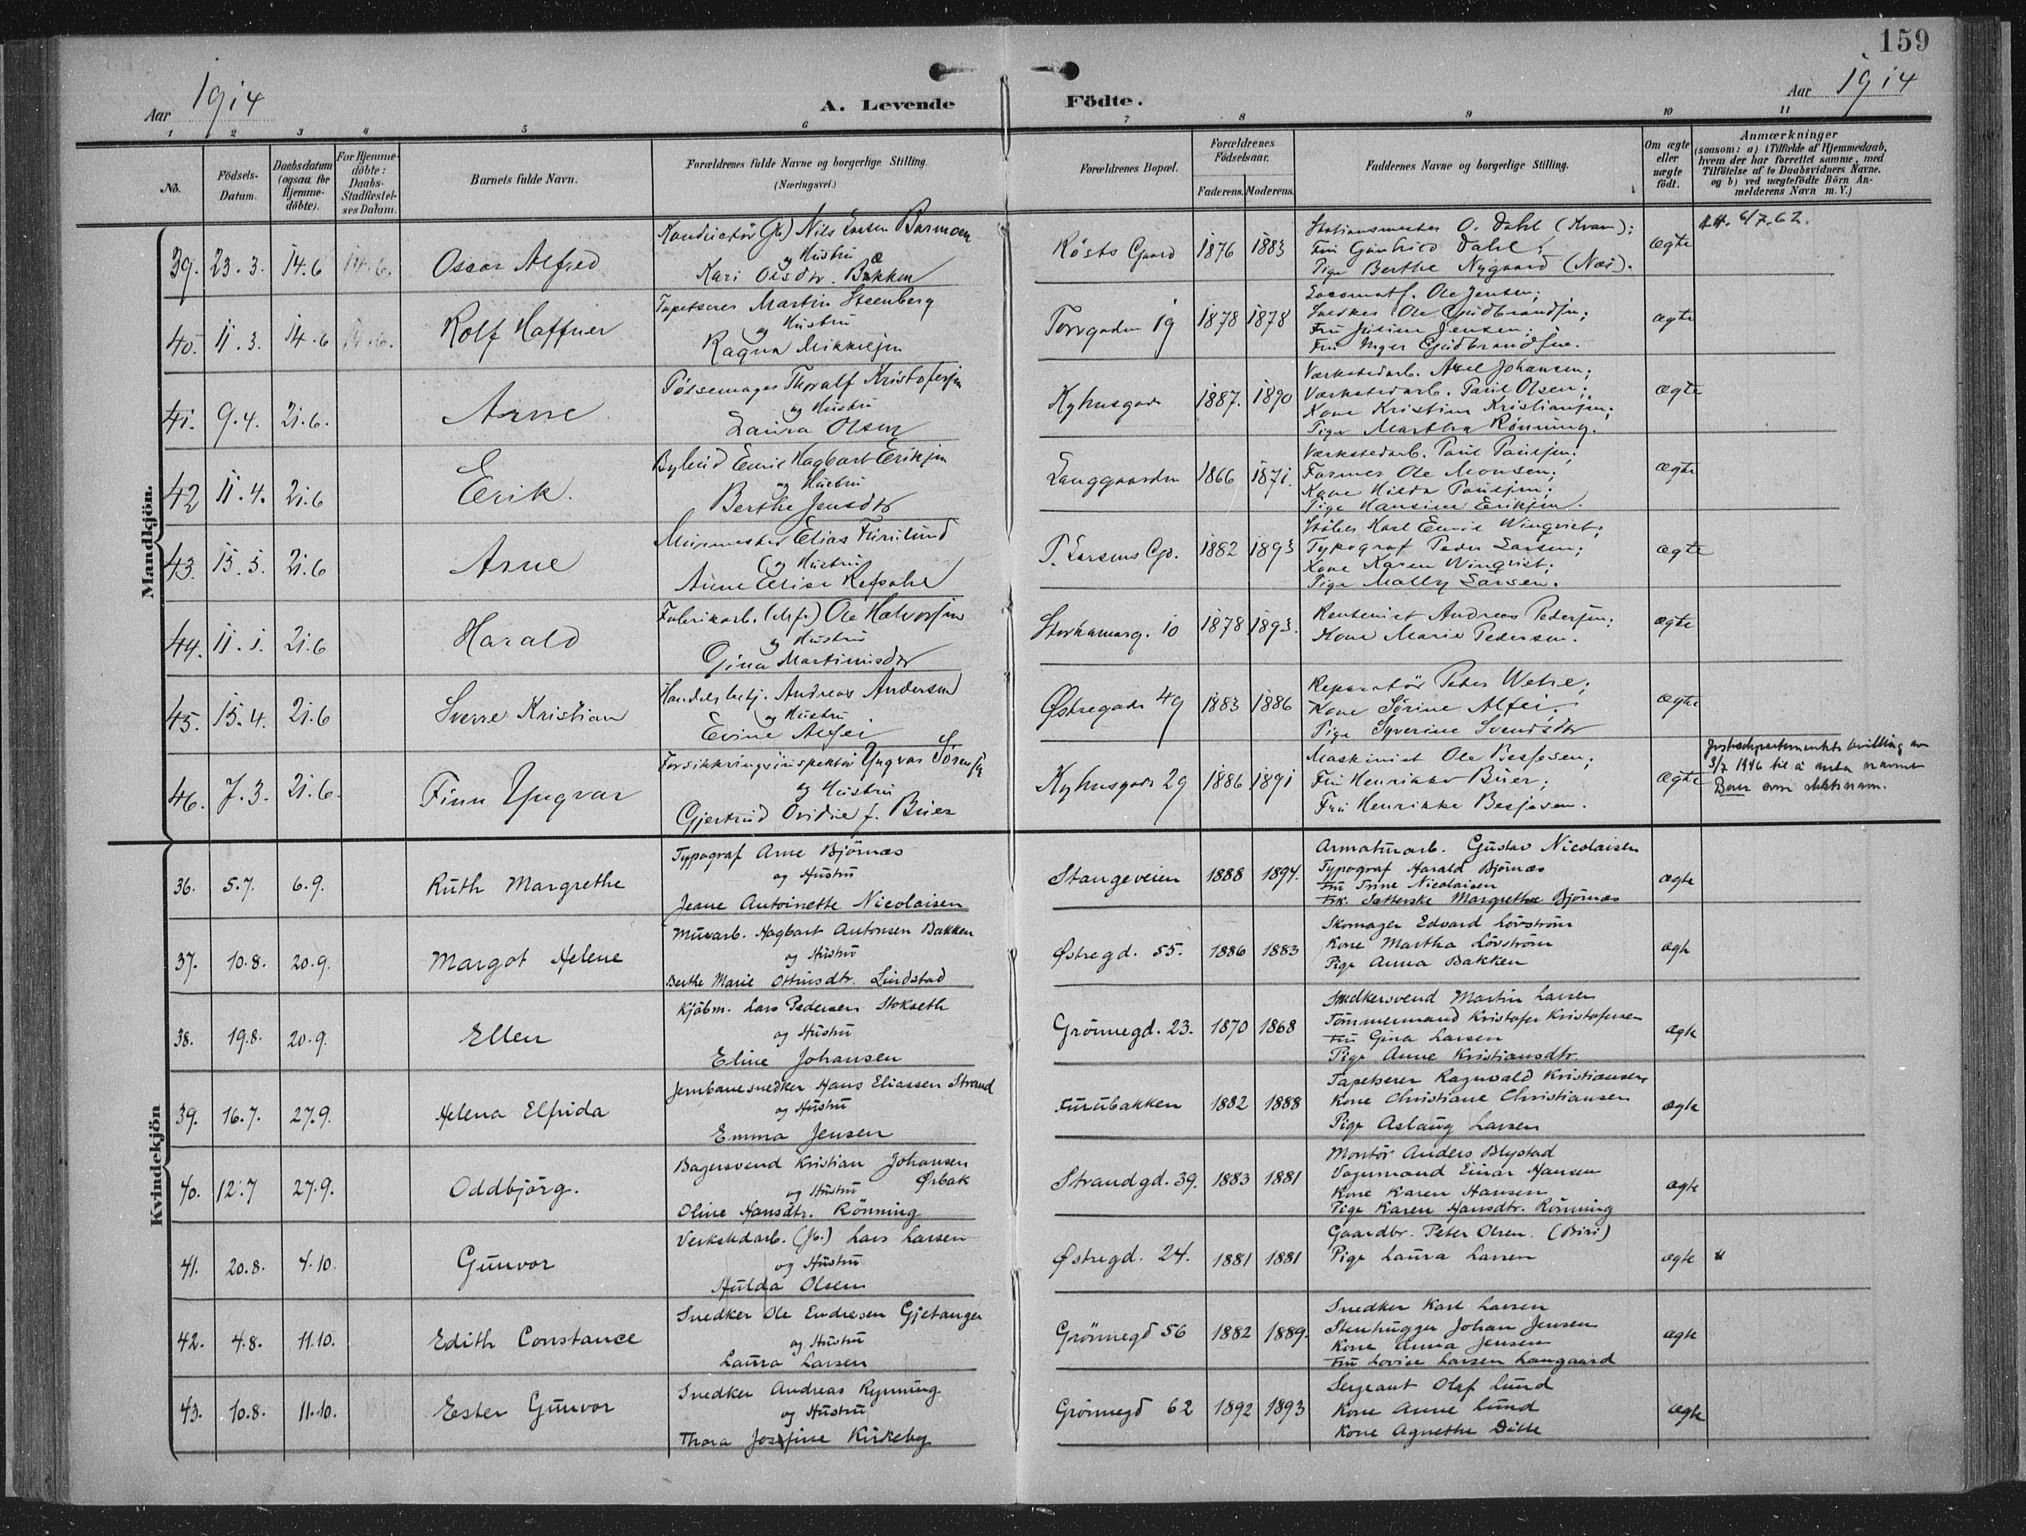 159
Aar 1914
A. Levende Födte.
Aar 1914
1 2 3 4 5 6 7 8 9 10 11
No.
Födsels-Datum.
Daabsdatum (ogsaa for Hjemmedöbte).
For Hjemmedöbte: Daabs-Stadfæstelses Datum.
Barnets fulde Navn.
Forældrenes fulde Navne og borgerlige Stilling. (Næringsvei.)
Forældrenes Bopæl.
Forældrenes Födselsaar.
Faderens. Moderens.
Faddernes Navne og borgerlige Stilling.
Om ægte eller uægte födt.
Anmærkninger
(saasom: a) i Tilfælde af Hjemmedaab,
hvem der har forrettet samme, med
Tilföielse af to Daabsvidners Navne,
og b) ved uægtefödte Börn Anmelderens Navn m. V.)
Mandkjön.
39. 23.3. 14.6 14.6. Oscar Alfred
Konduktör (Jb) Nils Larsen Barmoen
og Hustru
Kari Olsdtr. Bækken
Røsts Gaard 1876 1883
Stationsmester O. Dahl (Kvam);
Fru Gunhild Dahl;
Pige Berthe Nygaard (Næs).
ægte
6/7.62.
40. 11.3. 14.6 14.6. Rolf Haffner
Tapetserer Martin Steenberg
og Hustru
Ragna Mikkelsen
Torvgaden 19 1878 1878
Locomotf. Ole Jensen;
Snedker Ole Gudbrandsen;
Fru Jensen;
Fru Inger Gudbrandsen.
ægte
41. 9.4. 21.6. Arne
Pölsemager Thoralf Kristofersen
og Hustru
Laura Olsen
Kyhusgade 1887. 1890
Værkstedarb. Axel Johansen;
Værkstedarb. Paul Olsen;
Kone Kristine Kristiansen;
Pige Martha Rönning.
ægte
42 11.4. 21.6 Erik.
Bybud Emil Hagbart Eriksen
og Hustru
Berthe Jensdtr
Langgaarden 1866 1871.
Værkstedarb. Paul Paulsen;
Farmer Ole Monsen;
Kone Hilda Paulsen;
Pige Hansine Eriksen.
ægte
43. 15.3. 21.6 Arne
Murmester Elias Furulund
og Hustru
Anne Elise Hefsahl
P. Larsens Gd. 1882 1893
Støber Karl Emil Winqvist;
Typograf Peder Larsen;
Kone Karen Winqvist;
Pige Mally Larsen.
ægte
44. 11.1. 21.6 Harald
Fabrikarb. Ole Halvorsen
og Hustru
Gina Martinusdtr
Storhamarg. 10 1878 1893.
Rentenist Andreas Pedersen;
Kone Marie Pedersen.
ægte
45. 15.4. 21.6 Sverre Kristian
Handelsbetj. Andreas Andersen
og Hustru
Evine Alfei
Østregade 49 1883 1886
Reparatör Peter Wetre;
Kone Sörine Alfei;
Pige Syverine Svendsdtr
ægte
46. 7.3. 21.6. Finn Yngvar
Forsikkringsinspektör Yngvar Sörensen
og Hustru
Gjertrud Ovidie f. Büer
Kyhusgade 29 1886 1891
Maskinist Ole Besjøsen;
Fru Henrikke Büer;
Fru Henrikke Besjøsen.
ægte
Justisdepartementets bevilling av
3/7 1946 til å anta navnet
som slektsnavn.
Kvindekjön
36. 5.7. 6.9. Ruth Margrethe
Typograf Arne Björnæs
og Hustru
Jeane Antoinette Nicolaisen
Stangeveien 1888 1894.
Armaturarb. Gustav Nicolaisen
Typograf Harald Björnæs
Fru Trine Nicolaisen
Frk. Sætterske Margrethe Björnæs
ægte
37. 10.8. 20.9. Margot Helene
Murarb. Hagbart Antonsen Bakken
og Hustru
Berthe Marie Ottinsdtr. Lindstad
Østregd. 55. 1886 1883
Skomager Edvard Lövström
Kone Martha Lövström
Pige Anna Bakken
ægte
38. 19.8. 20.9. Ellen
Kjöbm. Lars Pedersen Stokseth
og Hustru
Eline Johansen
Grönnegd. 23. 1870 1868
Snedkersvend Martin Larsen
Tömmermand Kristofer Kristofersen
Fru Gina Larsen
Pige Anne Kristiansdtr.
ægte
39. 16.7. 27.9. Helena Elfrida
Jernbanesnedker Hans Eliassen Strand
og Hustru
Emma Jensen
Furubakken 1882 1888
Tapetserer Ragnvald Kristiansen
Kone Christiane Christiansen
Pige Aslaug Larsen
ægte
40. 12.7 27.9. Oddbjörg.
Bagersvend Kristian Johansen
Ørbak
og Hustru
Oline Hansdtr. Rönning
Strandgd. 39. 1883 1881
Montör Anders Blystad
Vognmand Einar Hansen
Kone Karen Hansen
Pige Karen Hansdtr. Rönning
ægte
41. 20.8. 4.10. Gunvor
Verkstedarb. (Jb.) Lars Larsen
og Hustru
Hulda Olsen
Østregd. 24. 1881 1881
Gaardbr. Peter Olsen. (Biri)
Pige Laura Larsen
ægte
42. 4.8. 11.10. Edith Constance
Snedker Ole Endresen Gjetanger
og Hustru
Laura Larsen
Grönnegd 56 1882 1889.
Snedker Karl Larsen
Stenhugger Johan Jensen
Kone Anna Jensen
Fru Lovise Larsen Langaard
ægte
43. 10.8. 11.10. Ester Gunvor
Snedker Andreas Rynning
og Hustru
Thora Josefine Kirkeby
Grönnegd 62 1892 1893
Sergeant Olaf Lund
Kone Anne Lund
Kone Agnethe Dille
ægte